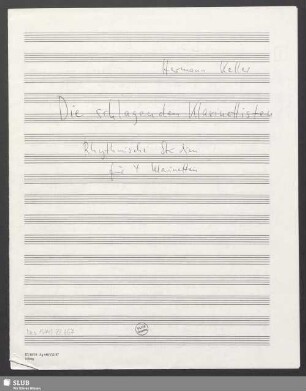 Hermann Keller
Die schlagenden Klarinettisten
Rhythmische Studien
für 4 Klarinetten
SLUB
Wir führen Wissen.